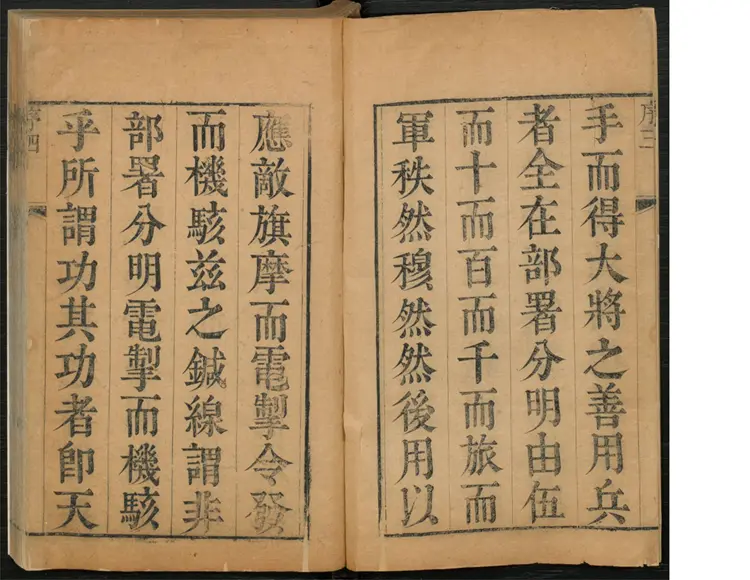 序三
手而得大將之善用兵
者全在部署分明由伍
而十而百而千而旅而
軍秩然穆然然後用以
應敵旗摩而電掣令發
而機駭兹之鍼線謂非
部署分明電掣而機駭
乎所謂功其功者卽天
序四